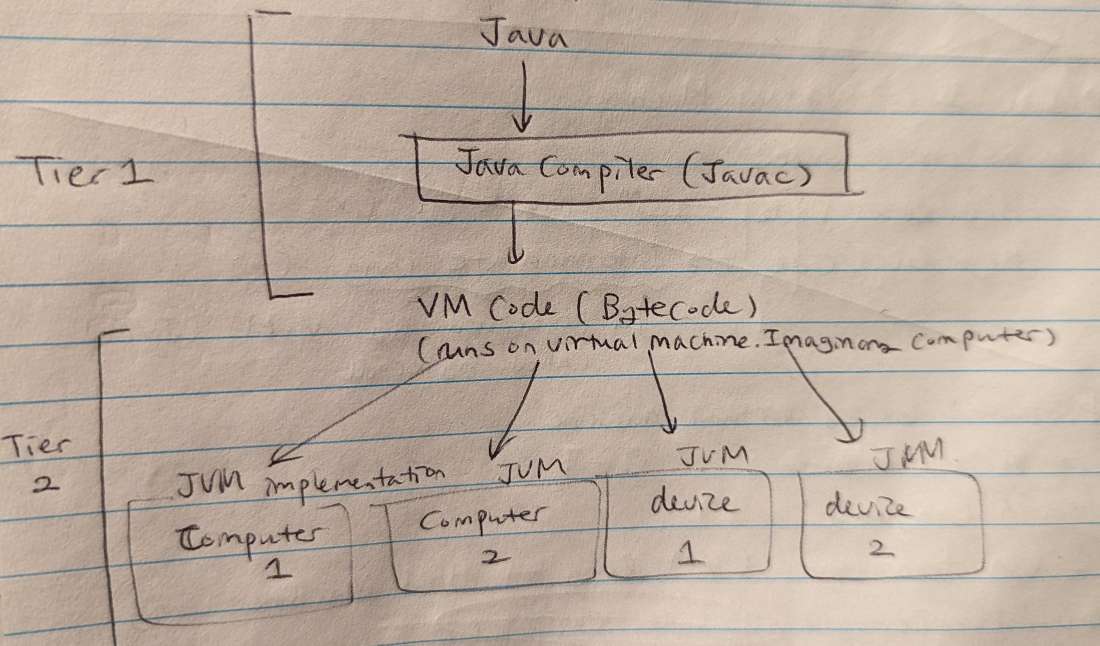 Java
Java Compiler (Javac)
Tier 1
VM Code (Bytecode)
(runs on virtual machine. Imaginary Computer)
Tier
2
JVM implementation
JVM
JVM
JVM
Computer
1
Computer
2
device
1
device
2